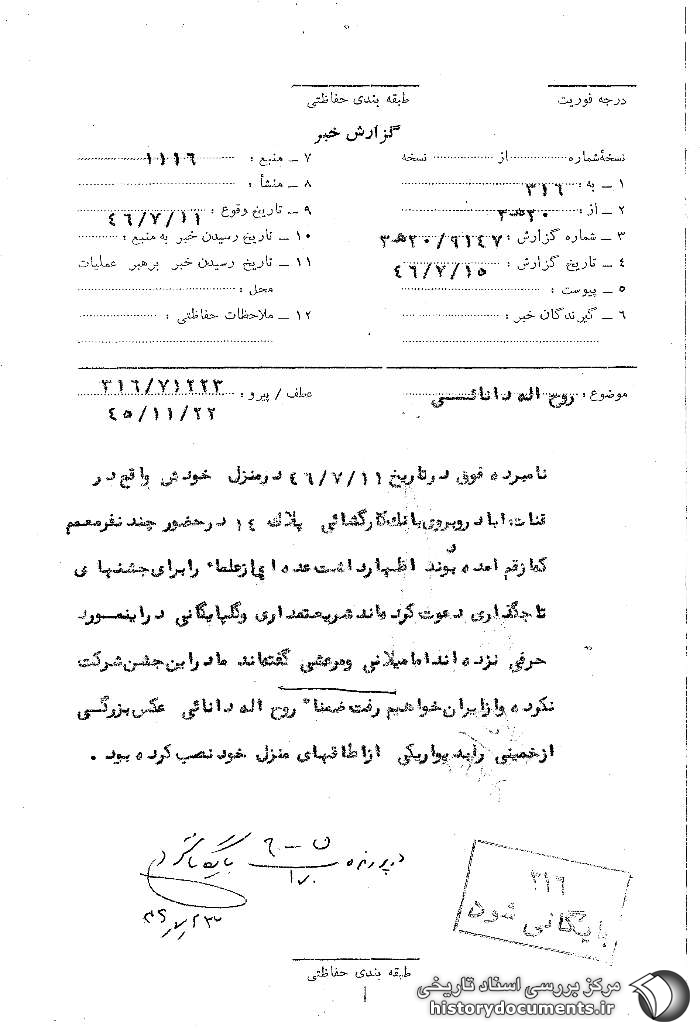 درجه فوریت
طبقه بندی حفاظتی
گزارش خبر
نسخهٔ شماره از نسخه
۱ ـ به : ۳۱۶
۲ ـ از : ۲۰ه۳
۳ ـ شماره گزارش : ۲۰ه۳/۹۱۴۷
۴ ـ تاریخ گزارش : ۴۶/۷/۱۵
۵ ـ پیوست :
۶ ـ گیرندگان خبر :
۷ ـ منبع : ۱۱۱۶
۸ ـ منشأ :
۹ ـ تاریخ وقوع : ۴۶/۷/۱۱
۱۰ ـ تاریخ رسیدن خبر به منبع :
۱۱ ـ تاریخ رسیدن خبر برهبر عملیات
محل :
۱۲ ـ ملاحظات حفاظتی :
موضوع : روح اله دانائی
عطف / پیرو : ۳۱۶/۷۱۲۲۳
۴۵/۱۱/۲۲
نامبرده فوق درتاریخ ۴۶/۷/۱۱ درمنزل خودش واقع در
قنات اباد روبروی بانک کارگشائی پلاک ۱۴ درحضور چند نفرمعمم
که ازقم امده بودند اظهارداشت عده ای ازعلماء رابرای جشنهای
تاجگذاری دعوت کرده اند شریعتمداری وگلپایگانی دراینمورد
حرفی نزده اند اما میلانی ومرعشی گفته اند مادراین جشن شرکت
نکرده وازایران خواهیم رفت ضمنا" روح اله دانائی عکس بزرگی
ازخمینی رابدیواریکی ازاطاقهای منزل خود نصب کرده بود .
در پرونده
بایگانی گردد
۳۱۶
بایگانی شود
طبقه بندی حفاظتی
مرکز بررسی اسناد تاریخی
historydocuments.ir